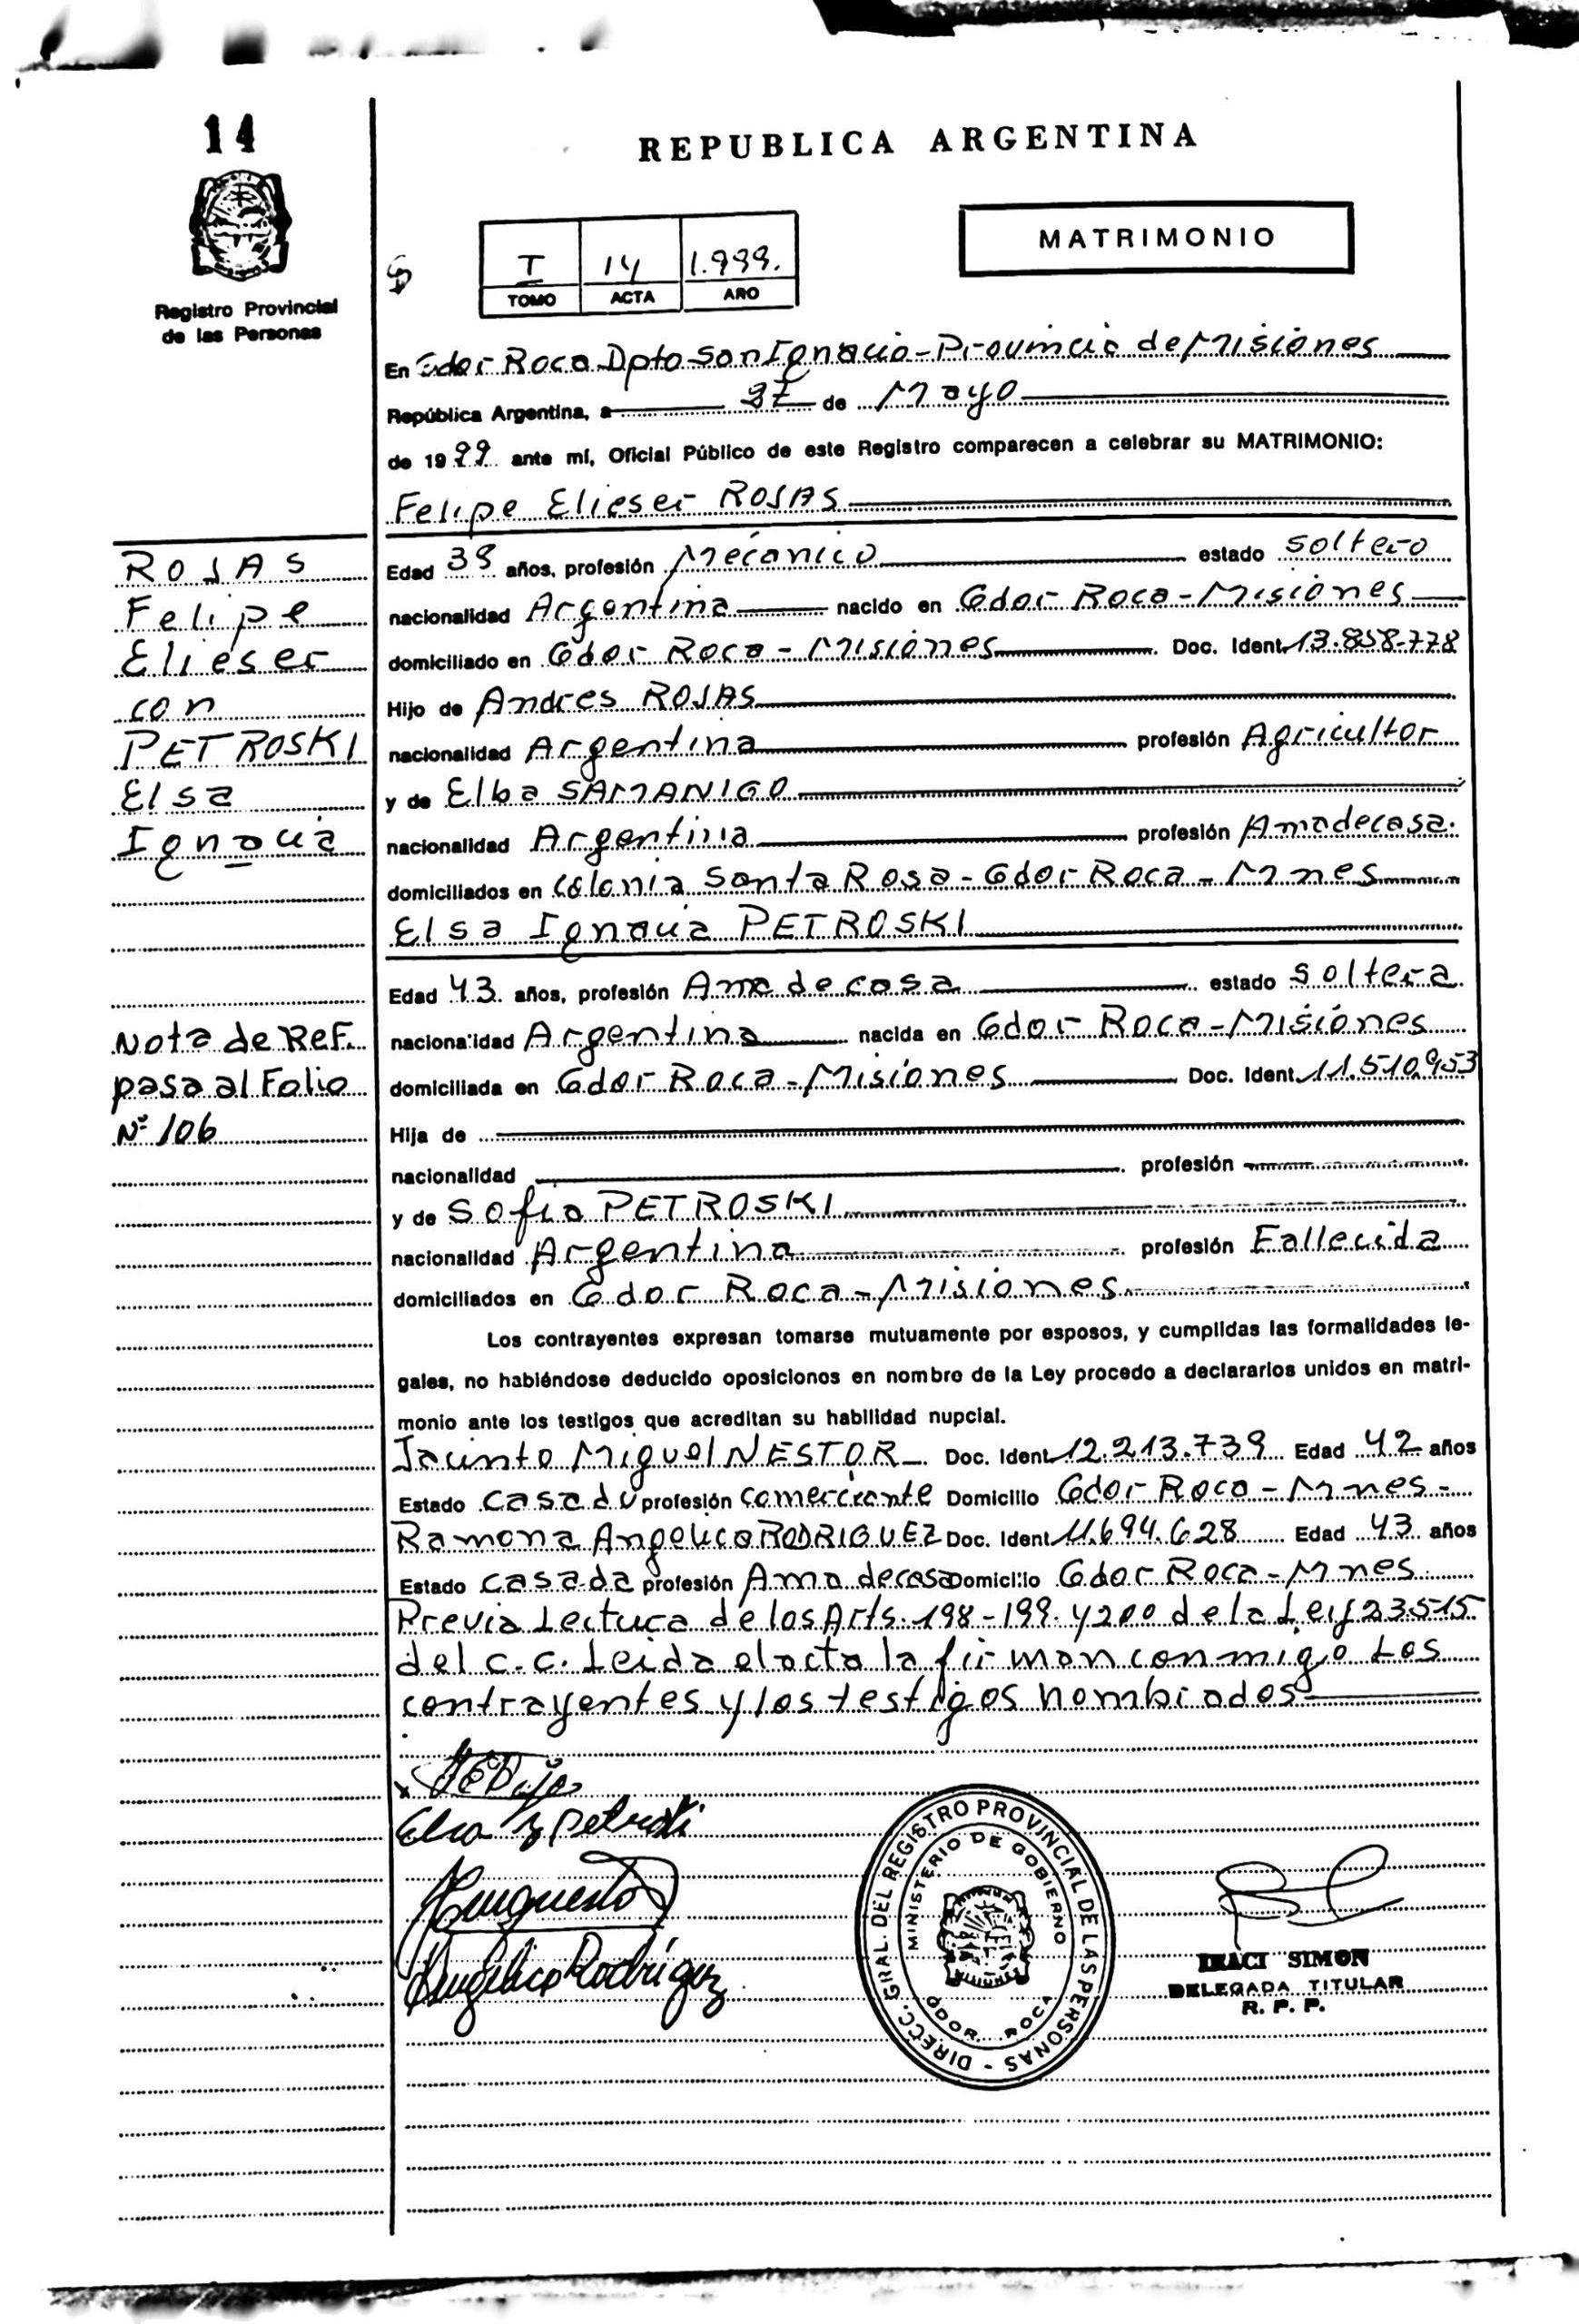 14
REPUBLICA ARGENTINA
Registro Provincial
de las Personas
I 14 1.999.
TOMO ACTA AÑO
MATRIMONIO
En Gdor Roca Dpto San Ignacio - Provincia de Misiones
República Argentina, a de Mayo
de 1999 ante mí, Oficial Público de este Registro comparecen a celebrar su MATRIMONIO:
Felipe Elieser ROJAS
ROJAS
Felipe
Elieser
con
PETROSKI
Elsa
Ignacia
Edad 38 años, profesión Mecánico estado soltero
nacionalidad Argentina nacido en Gdor Roca - Misiones
domiciliado en Gdor Roca - Misiones Doc. Ident. 13.858.778
Hijo de Andres ROJAS
nacionalidad Argentina profesión Agricultor
y de Elba SAMANIGO
nacionalidad Argentina profesión Ama de casa.
domiciliados en Colonia Santa Rosa - Gdor Roca - Mnes
Elsa Ignacia PETROSKI
Edad 43 años, profesión Ama de casa estado soltera
nacionalidad Argentina nacida en Gdor Roca - Misiones
domiciliada en Gdor Roca - Misiones Doc. Ident. 11.510.953
Nota de Ref.
pasa al Folio
Nº 106
Hija de
nacionalidad profesión
y de Sofia PETROSKI
nacionalidad Argentina profesión Fallecida
domiciliados en Gdor Roca - Misiones
Los contrayentes expresan tomarse mutuamente por esposos, y cumplidas las formalidades le-
gales, no habiéndose deducido oposicionos en nombre de la Ley procedo a declararlos unidos en matri-
monio ante los testigos que acreditan su habilidad nupcial.
Jacinto Miguel NESTOR Doc. Ident. 12.213.739 Edad 42 años
Estado Casado profesión comerciante Domicilio Gdor Roca - Mnes -
Ramona Angelica RODRIGUEZ Doc. Ident. 11.694.628 Edad 43 años
Estado casada profesión Ama de casa Domicilio Gdor Roca - Mnes
Previa Lectura de los Arts. 198 - 199 y 200 de la Ley 23515
del C.C. Leida el acta la firman conmigo Los
contrayentes y los testigos nombrados
Elsa I Petroski
Angelica Rodriguez
DIRECC. GRAL. DEL REGISTRO PROVINCIAL DE LAS PERSONAS -
MINISTERIO DE GOBIERNO
GDOR. ROCA
MISIONES
IRACI SIMON
DELEGADA TITULAR
R. P. P.